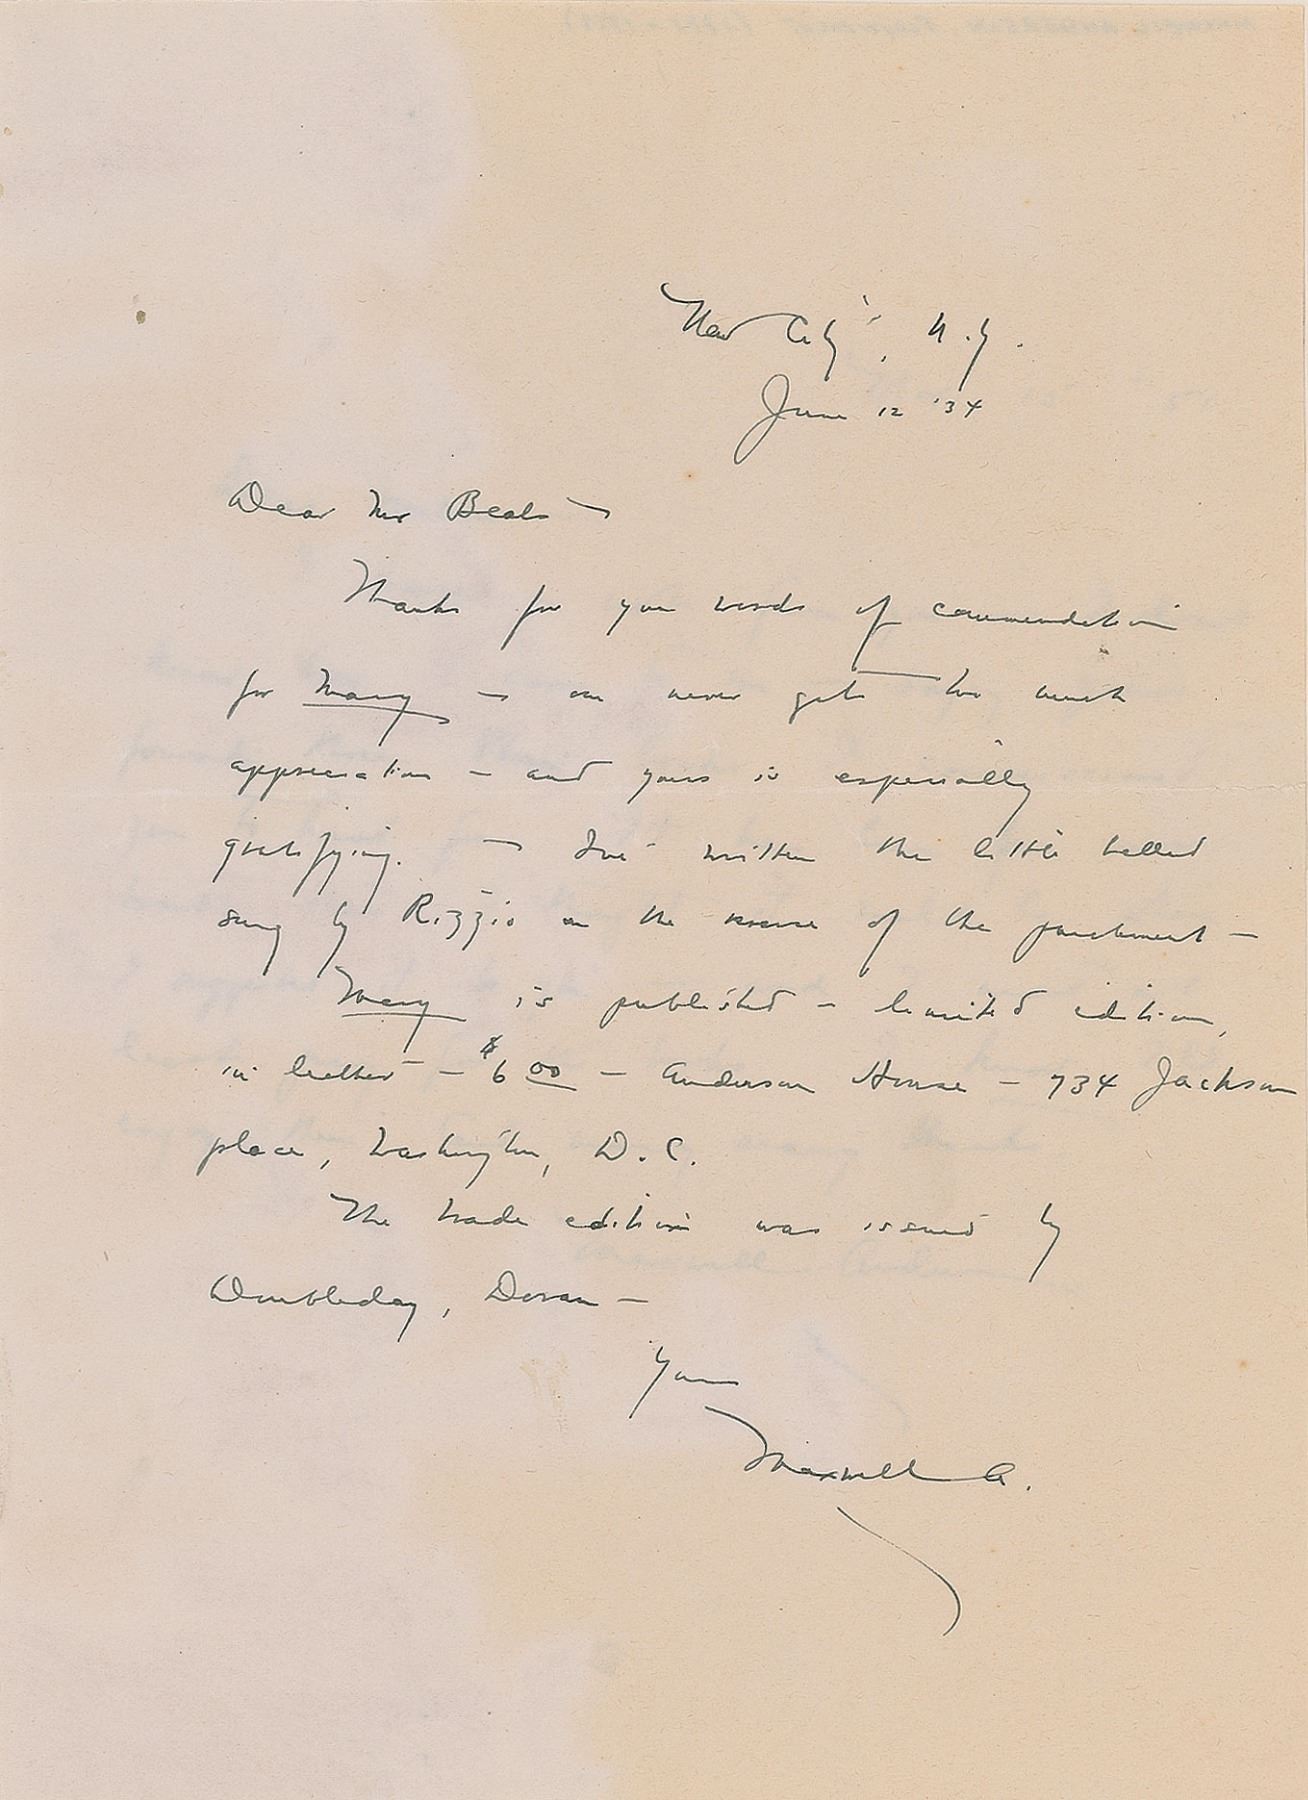 New City, N.Y.
June 12 '34
Dear Mr Beals —
Thanks for your words of commendation
for Mary — one never gets too much
appreciation — and yours is especially
gratifying. — I've written the little ballad
sung by Rizzio on the reverse of the parchment —
Mary is published — limited edition,
in leather — $6 00 — Anderson House — 734 Jackson
place, Washington, D.C.
The trade edition was issued by
Doubleday, Doran —
Yours
Maxwell A.